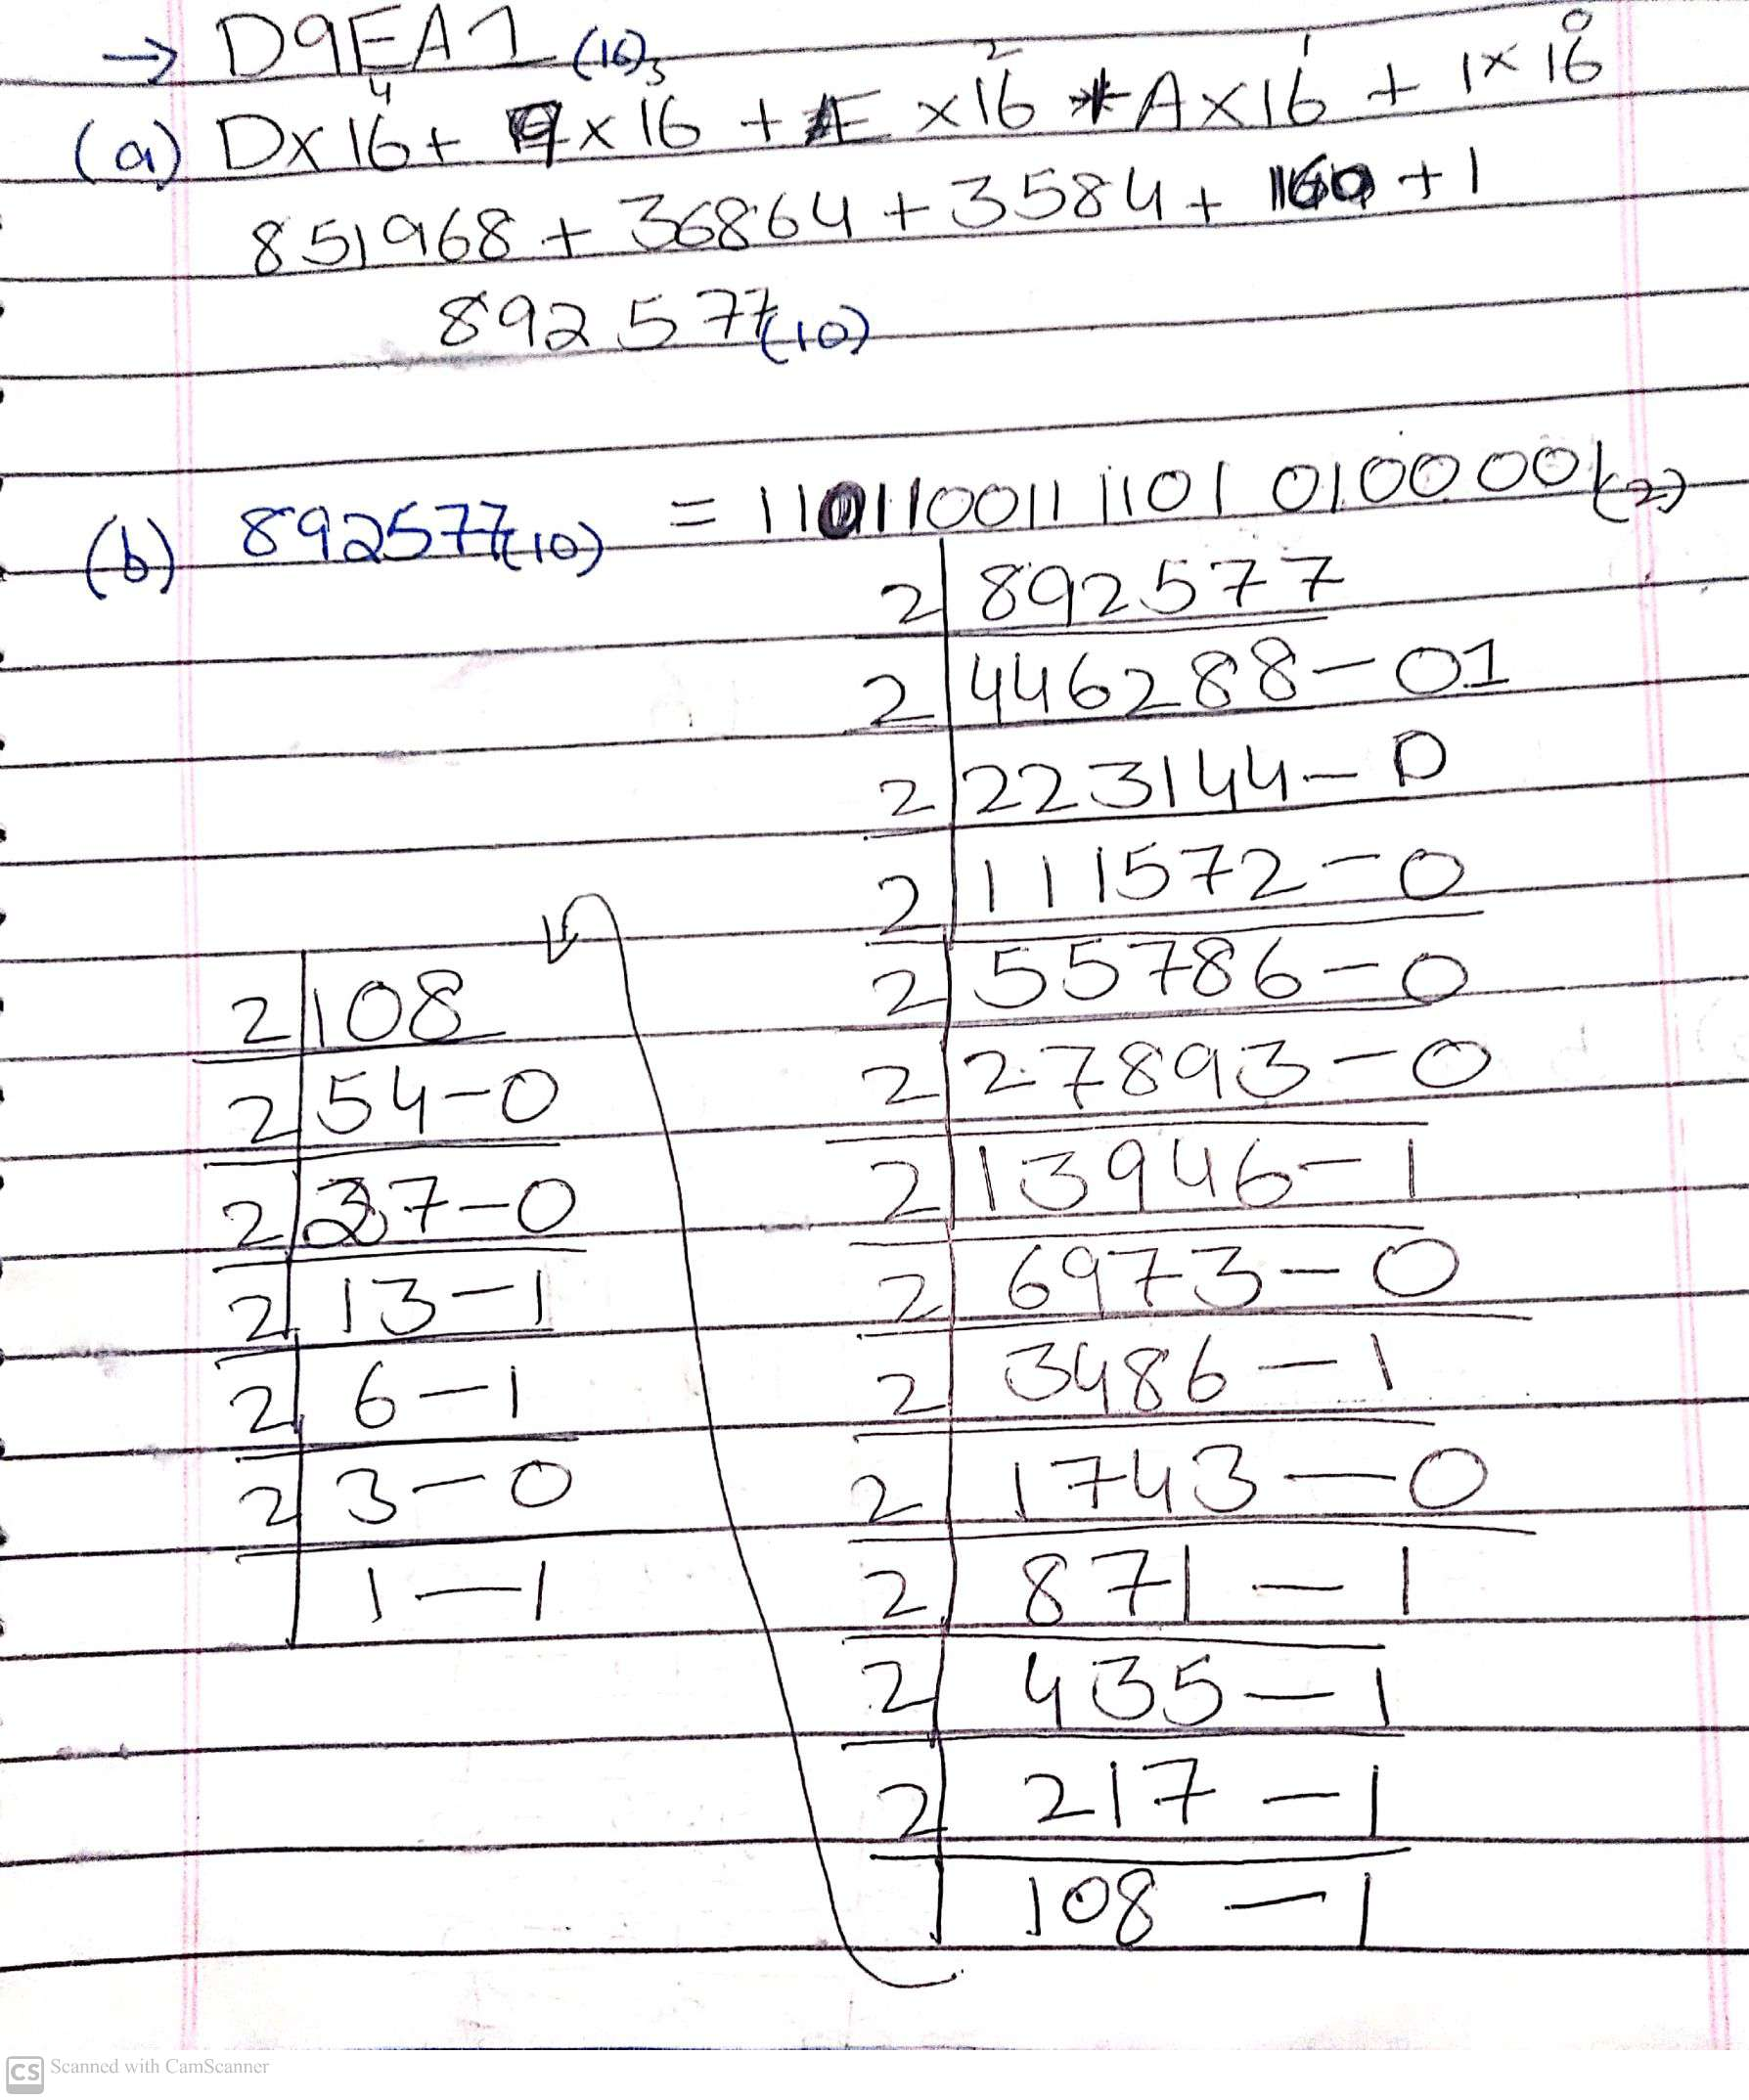 → D9EA1 (16)
(a) Dx16⁴ + 9x16³ + E x16² + Ax16¹ + 1x16⁰
851968 + 36864 + 3584 + 160 + 1
892577(10)
(b) 892577(10) = 11011001111010100001(2)
2 892577
2 446288-01
2 223144-0
2 111572-0
2 55786-0
2 27893-0
2 13946-1
2 6973-0
2 3486-1
2 1743-0
2 871-1
2 435-1
2 217-1
108-1
2 108
2 54-0
2 27-0
2 13-1
2 6-1
2 3-0
1-1
CS Scanned with CamScanner